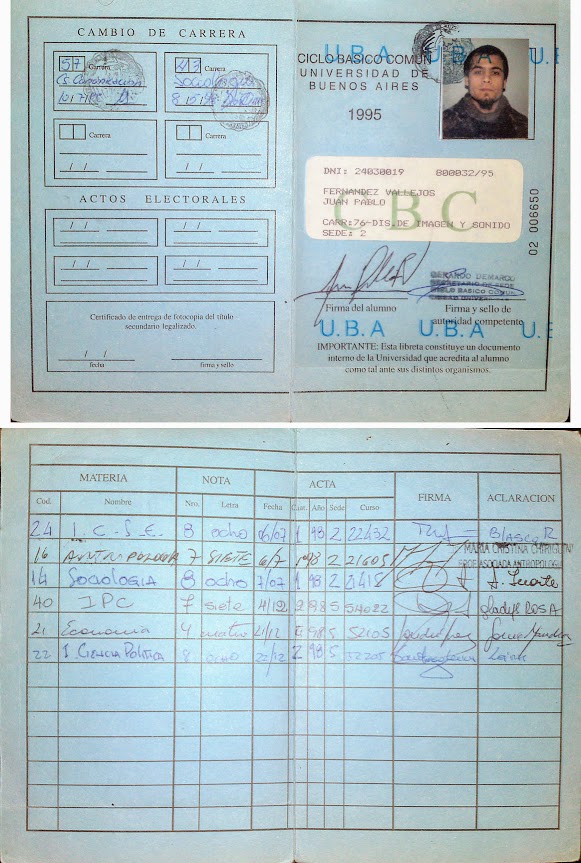 CAMBIO DE CARRERA
57 Carrera
213 Carrera
Sociología
Carrera
Carrera
ACTOS ELECTORALES
Certificado de entrega de fotocopia del título
secundario legalizado.
fecha
firma y sello
U.B.A U.B.A U.
CICLO BASICO COMUN
UNIVERSIDAD DE
BUENOS AIRES
1995
DNI: 24030019 800032/95
FERNANDEZ VALLEJOS
JUAN PABLO
CBC
CARR:76-DIS.DE IMAGEN Y SONIDO
SEDE: 2
02 006650
GERARDO DEMARCO
SECRETARIO DE SEDE
CICLO BASICO COMUN
Firma del alumno
Firma y sello de
autoridad competente
U.B.A U.B.A U.B
IMPORTANTE: Esta libreta constituye un documento
interno de la Universidad que acredita al alumno
como tal ante sus distintos organismos.
MATERIA NOTA ACTA FIRMA ACLARACION
Cod. Nombre Nro. Letra Fecha Cuat. Año Sede Curso
24 I.C.S.E. 8 ocho 1 98 2 22432 BLASCO R
16 ANTROPOLOGIA 7 SIETE 6/7 1 98 2 21605
MARIA CRISTINA CHIRIGUINI
PROF. ASOCIADA ANTROPOLOGIA
14 SOCIOLOGIA 8 ocho 7/07 1 98 2
40 IPC 7 siete 2 98 5 54022 Gladys ROSA
21 Economia 4 cuatro 21/12 2 98 5 52105
22 I. CIENCIA POLITICA 8 ocho 22/12 2 98 5 52205